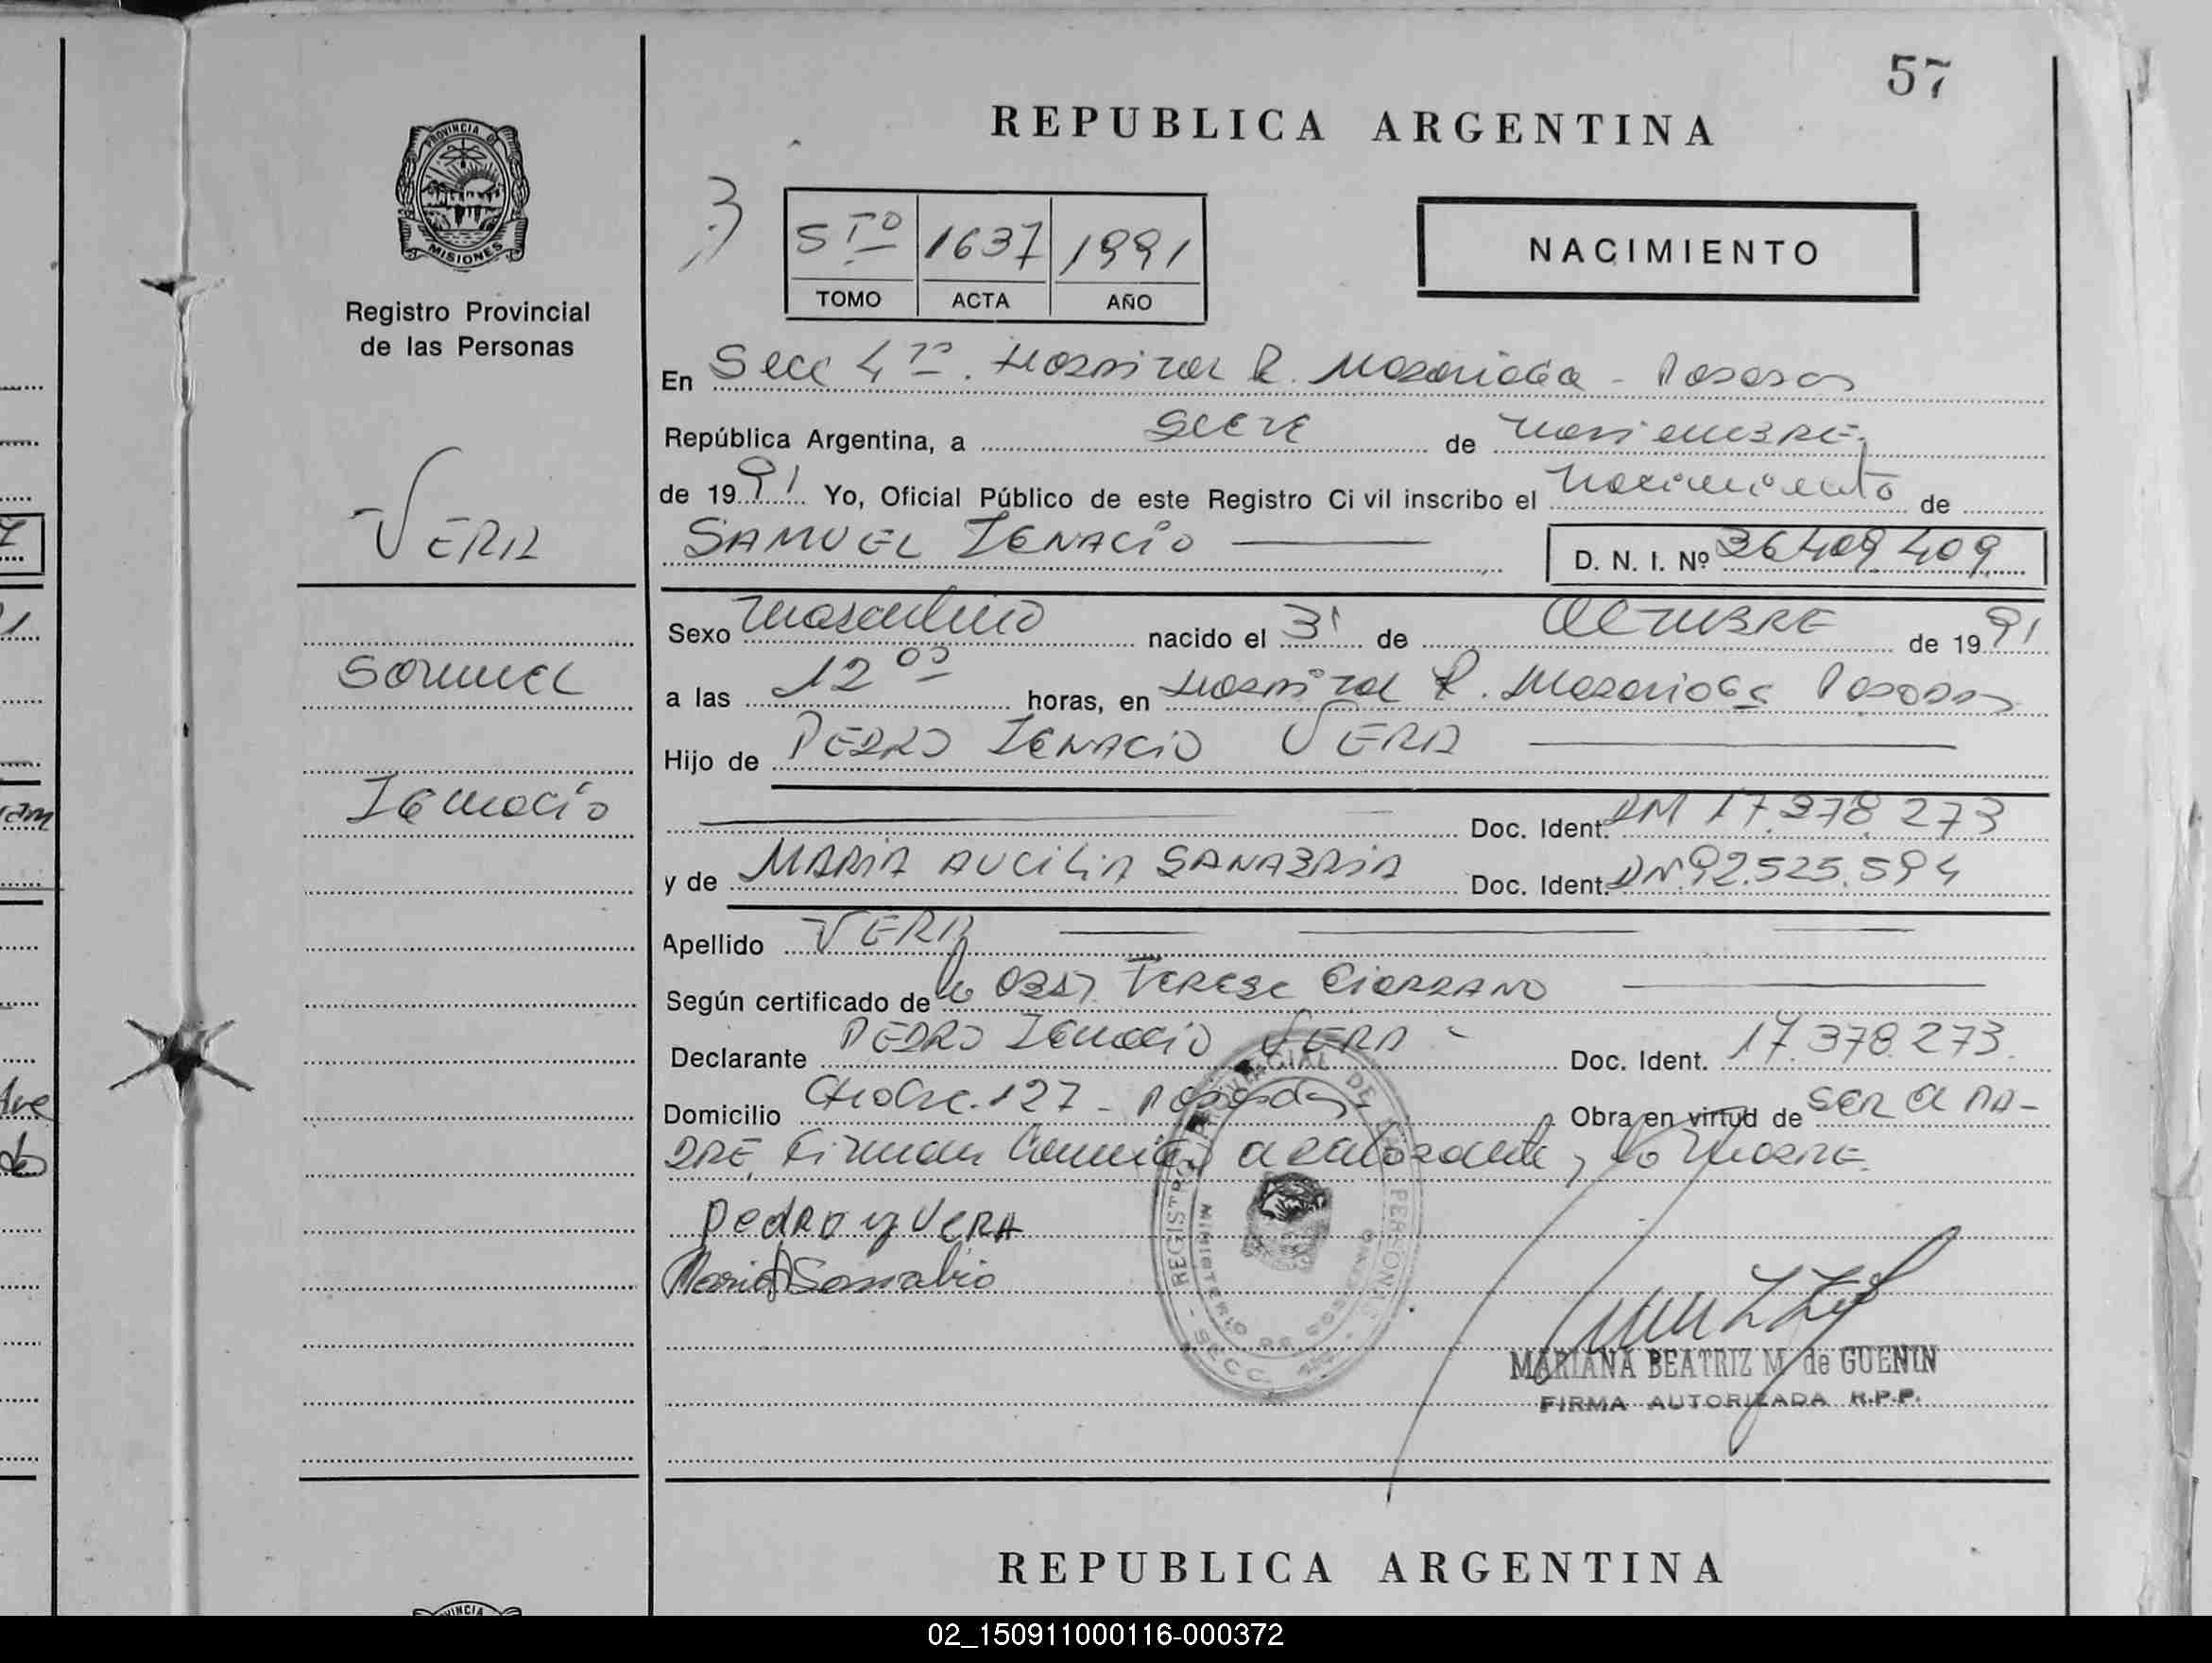 57
REPUBLICA ARGENTINA
PROVINCIA DE
MISIONES
Registro Provincial
de las Personas
5TO 1637 1991
TOMO ACTA AÑO
NACIMIENTO
En Secc 4ta. Hospital R. Madariaga - Posadas
República Argentina, a siete de noviembre
de 1991 Yo, Oficial Público de este Registro Civil inscribo el nacimiento de
VERA
SAMUEL IGNACIO
D. N. I. Nº 36.409.409
Sexo masculino nacido el 31 de OCTUBRE de 1991
Samuel
a las 12 00 horas, en Hospital R. Madariaga Posadas
Hijo de PEDRO IGNACIO VERA
Ignacio
Doc. Ident. DM 17.378.273
y de MARIA AUCILIA SANABRIA Doc. Ident. DN 92.525.594
Apellido VERA
Según certificado de la Obst.
Declarante PEDRO Ignacio VERA Doc. Ident. 17.378.273
Domicilio 127 - Posadas Obra en virtud de ser el PA-
DRE, Firman Conmigo el declarante, la MADRE.
Pedro y VERA
Maria A Sanabria
MARIANA BEATRIZ M. de GUENIN
FIRMA AUTORIZADA R.P.P.
REPUBLICA ARGENTINA
02_150911000116-000372